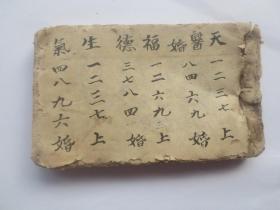 天一二三七上
醫八四六九婚
婚
福一二六九上
德三七八四婚
生一二三七上
氣四八九六婚